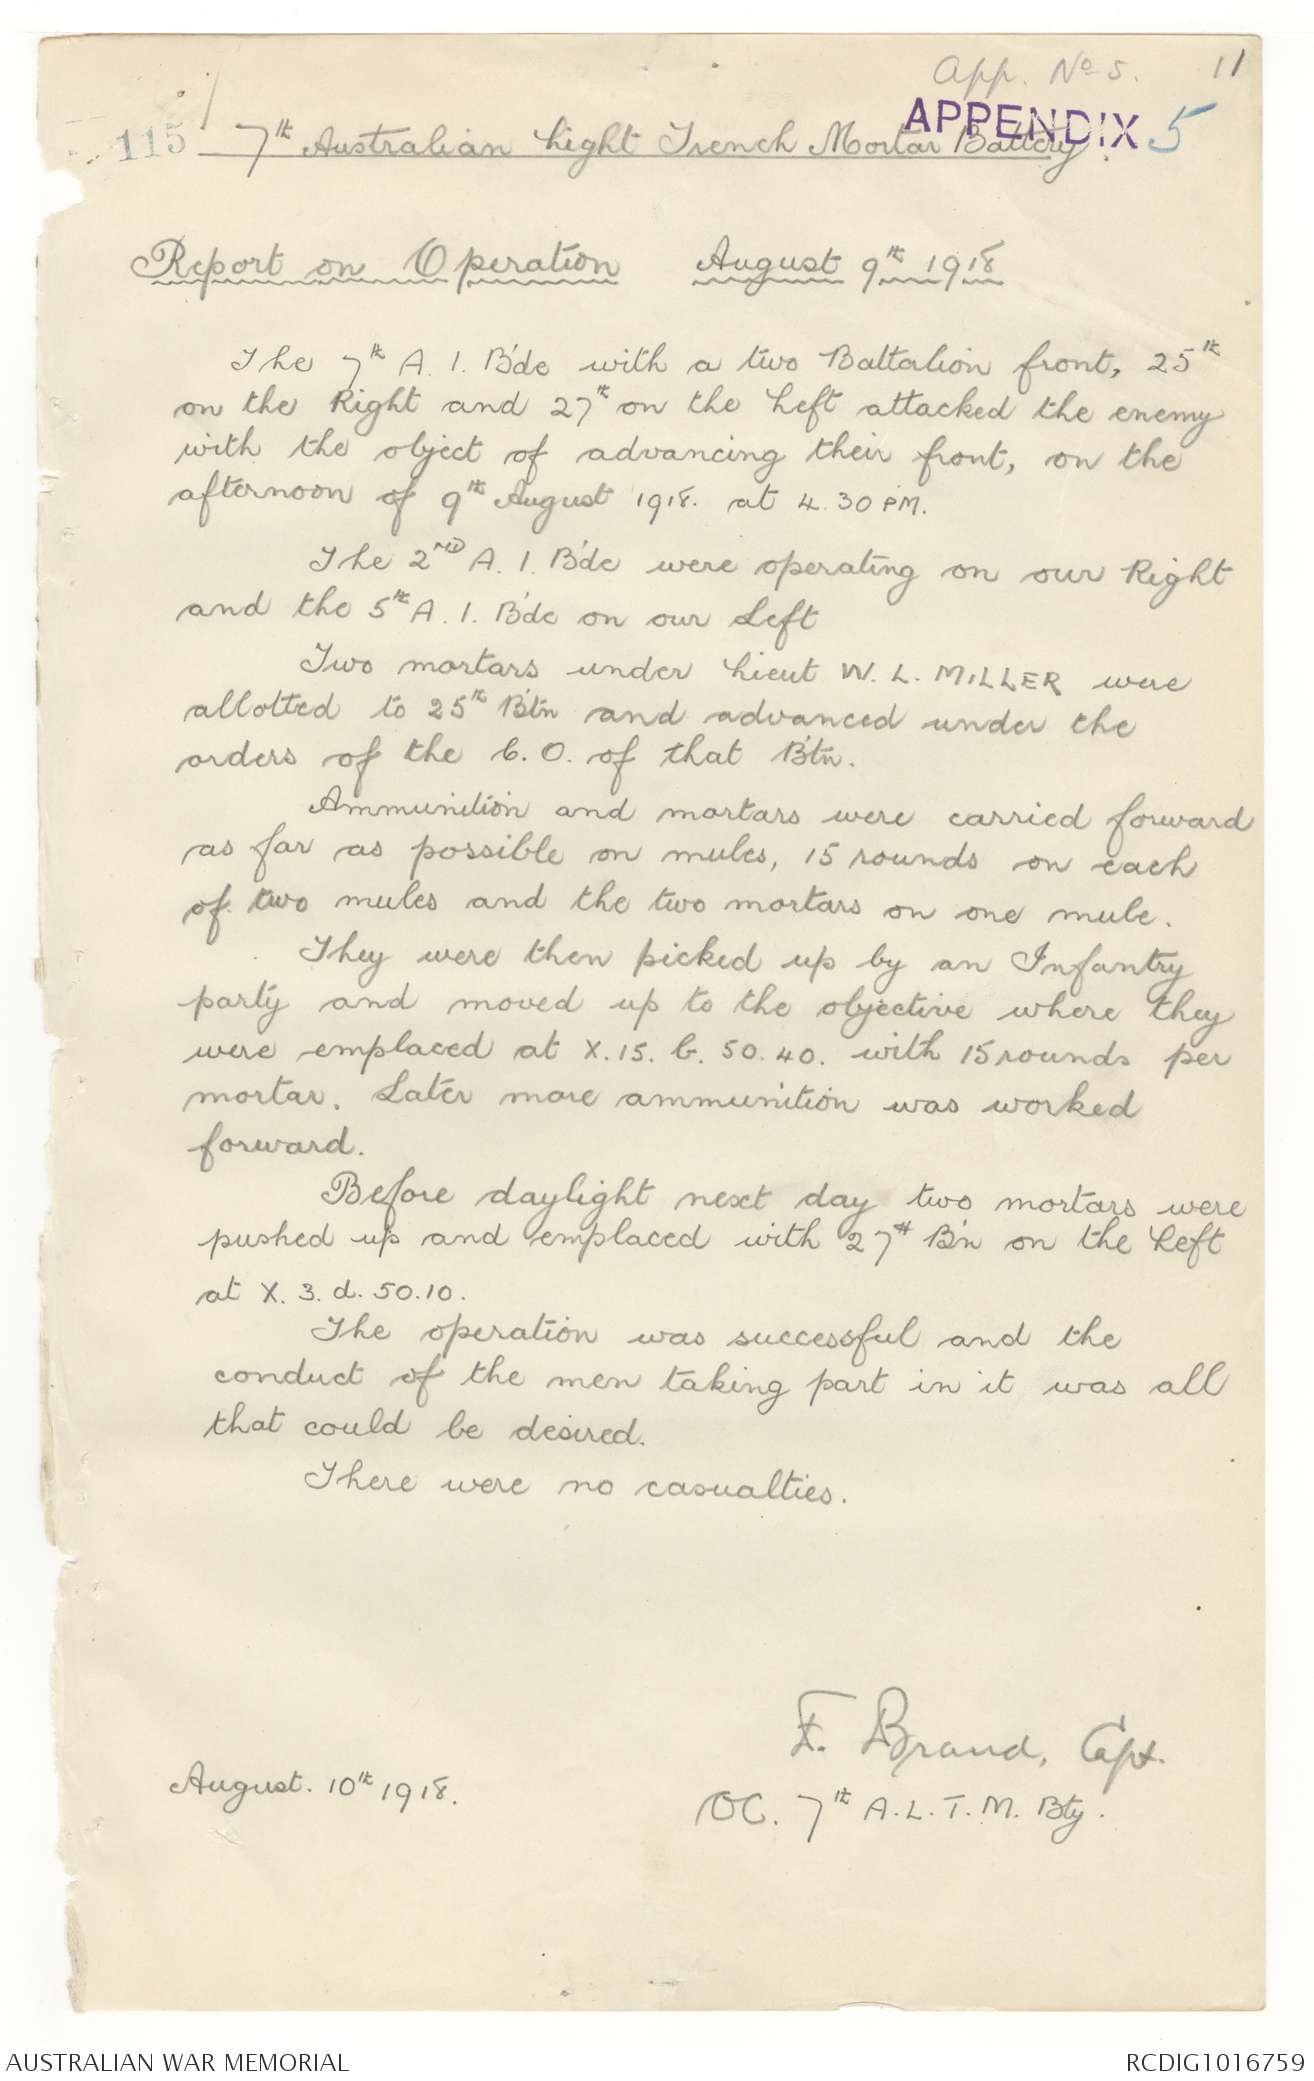 App. No 5.
11
APPENDIX 5
115
7th Australian Light Trench Mortar Battery.
Report on Operation August 9th 1918
The 7th A. I. B'de with a two Battalion front, 25th
on the Right and 27th on the Left attacked the enemy
with the object of advancing their front, on the
afternoon of 9th August 1918. at 4.30 PM.
The 2ND A. I. B'de were operating on our Right
and the 5th A. I. B'de on our Left
Two mortars under Lieut W. L. MILLER were
allotted to 25th B'tn and advanced under the
orders of the C. O. of that B'tn.
Ammunition and mortars were carried forward
as far as possible on mules, 15 rounds on each
of two mules and the two mortars on one mule.
They were then picked up by an Infantry
party and moved up to the objective where they
were emplaced at X. 15. b. 50. 40. with 15 rounds per
mortar. Later more ammunition was worked
forward.
Before daylight next day two mortars were
pushed up and emplaced with 27th B'n on the Left
at X. 3. d. 50.10.
The operation was successful and the
conduct of the men taking part in it was all
that could be desired.
There were no casualties.
F. Brand, Capt.
August. 10th 1918.
OC. 7th A. L. T. M. Bty.
AUSTRALIAN WAR MEMORIAL
RCDIG1016759